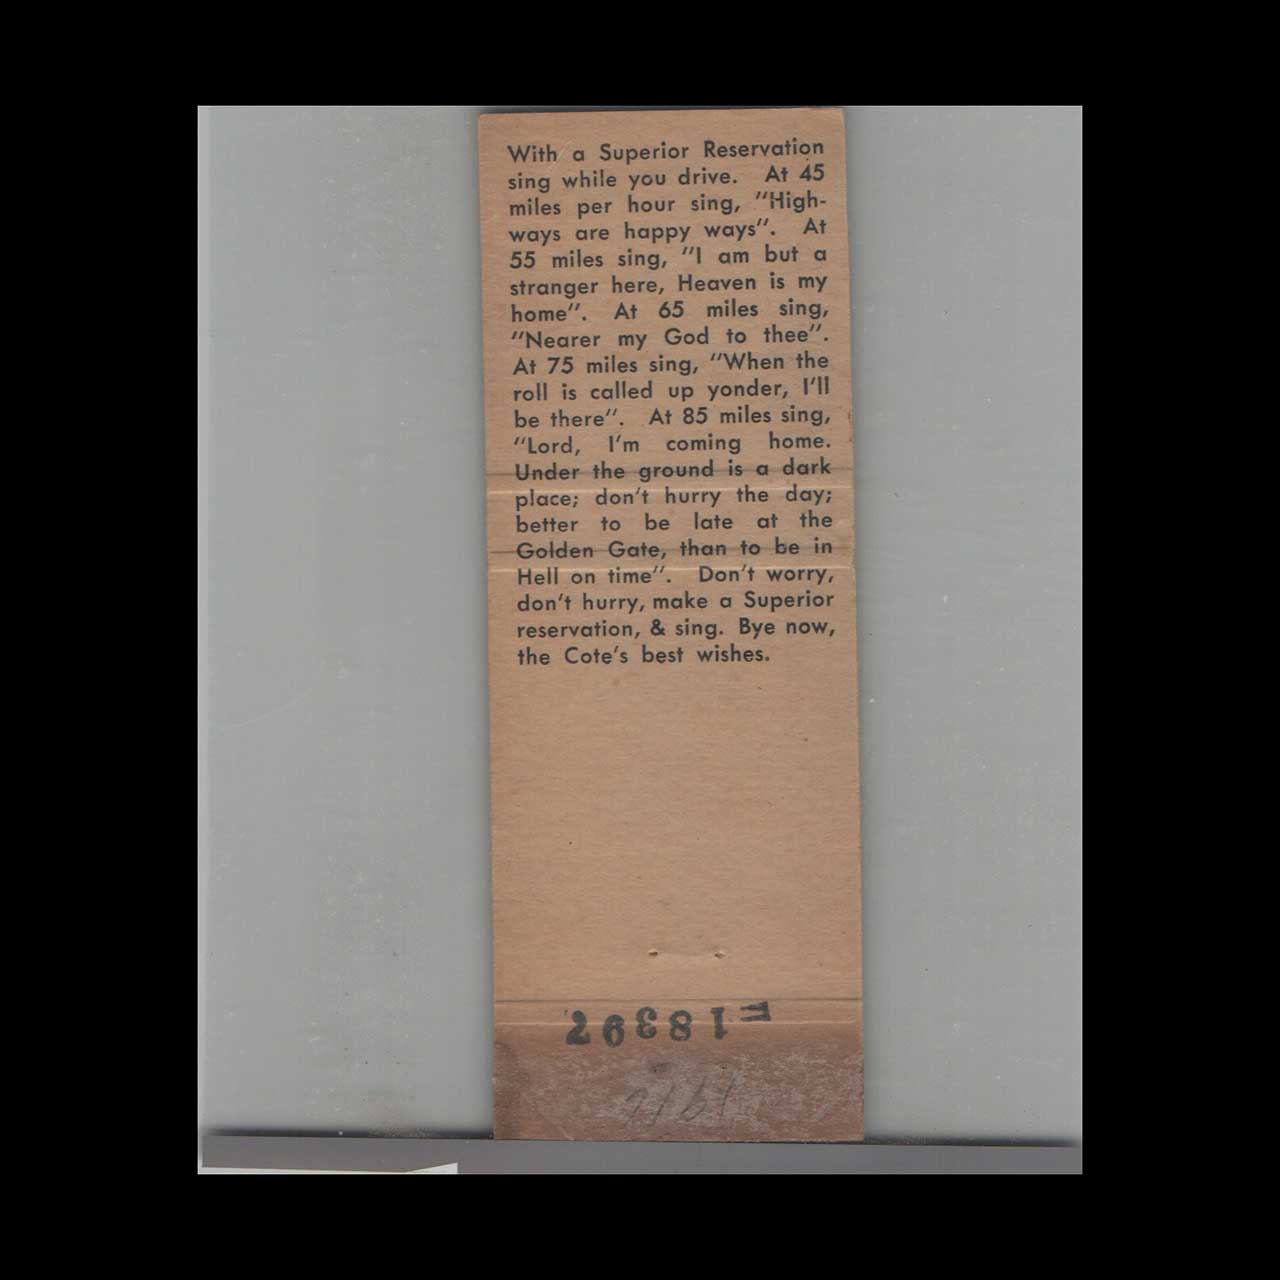 With a Superior Reservation
sing while you drive. At 45
miles per hour sing, "High-
ways are happy ways". At
55 miles sing, "I am but a
stranger here, Heaven is my
home". At 65 miles sing,
"Nearer my God to thee".
At 75 miles sing, "When the
roll is called up yonder, I'll
be there". At 85 miles sing,
"Lord, I'm coming home.
Under the ground is a dark
place; don't hurry the day;
better to be late at the
Golden Gate, than to be in
Hell on time". Don't worry,
don't hurry, make a Superior
reservation, & sing. Bye now,
the Cote's best wishes.